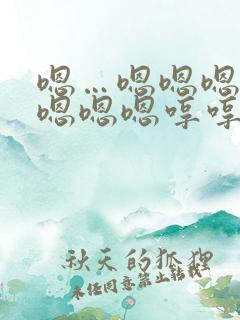 嗯…嗯嗯嗯
嗯嗯嗯哼哼
秋天的狐狸
未经同意禁止转载